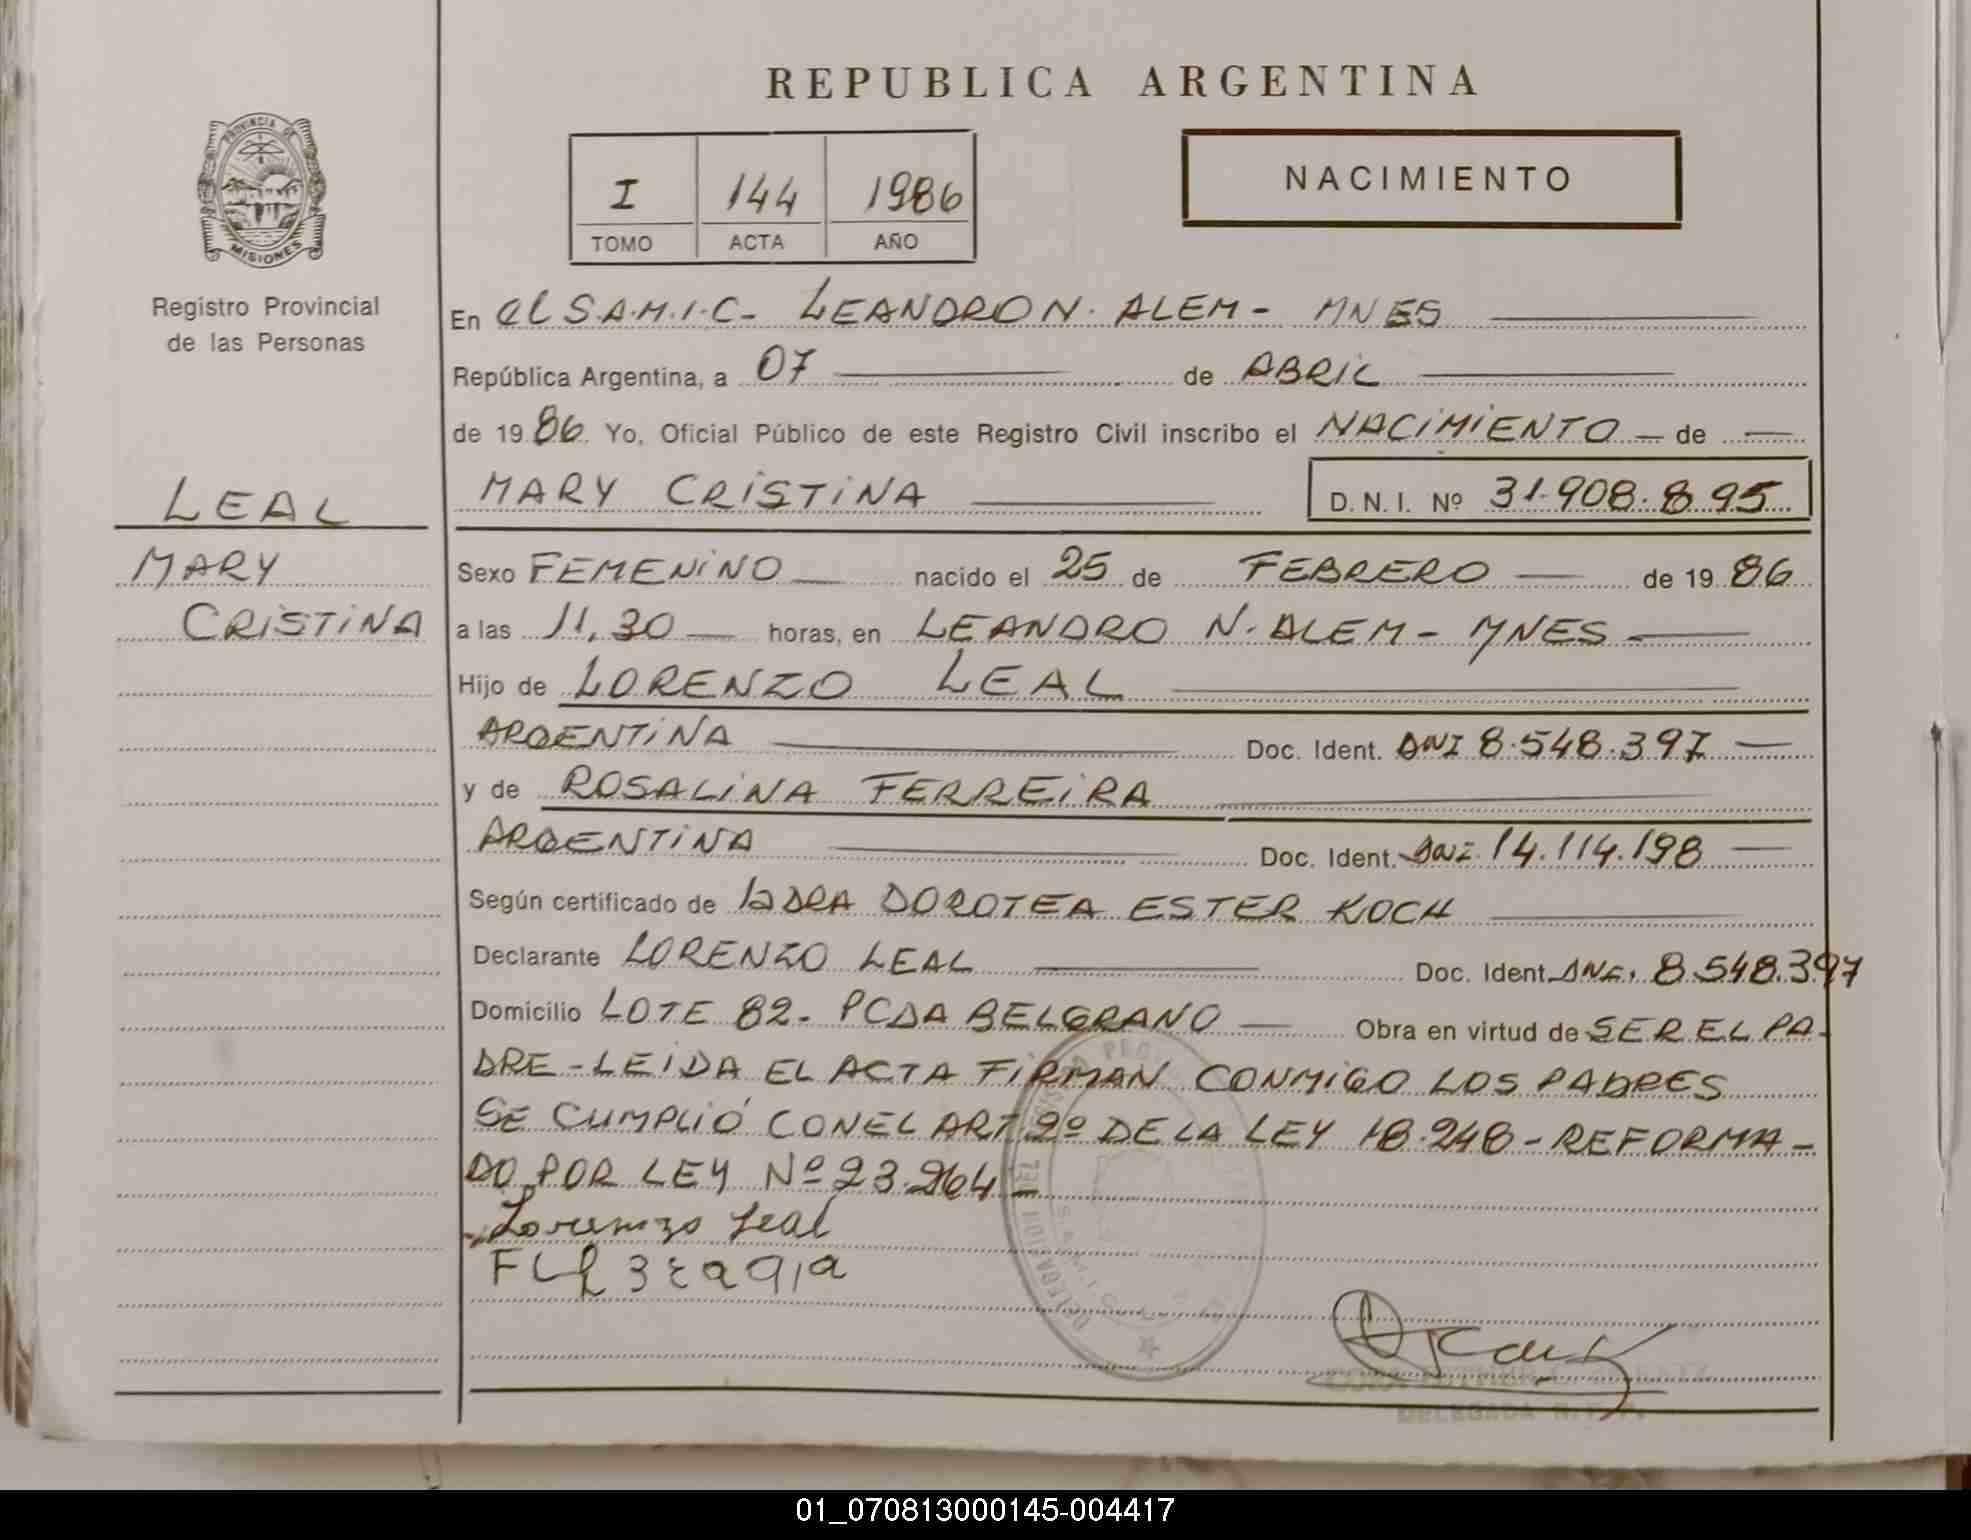 REPUBLICA ARGENTINA
PROVINCIA DE
MISIONES
Registro Provincial
de las Personas
I 144 1986
TOMO ACTA AÑO
NACIMIENTO
En el S.A.M.I.C- LEANDRO N. ALEM - MNES
República Argentina, a 07 de ABRIL
de 1986. Yo, Oficial Público de este Registro Civil inscribo el NACIMIENTO de
MARY CRISTINA D. N. I. Nº 31.908.895
LEAL
MARY
CRISTINA
Sexo FEMENINO nacido el 25 de FEBRERO de 1986
a las 11,30 horas, en LEANDRO N. ALEM - MNES
Hijo de LORENZO LEAL
ARGENTINA Doc. Ident. DNI 8.548.397
y de ROSALINA FERREIRA
ARGENTINA Doc. Ident. DNI 14.114.198
Según certificado de la DRA DOROTEA ESTER KOCH
Declarante LORENZO LEAL Doc. Ident. DNI. 8.548.397
Domicilio LOTE 82- PCDA BELGRANO Obra en virtud de SER EL PA-
DRE - LEIDA EL ACTA FIRMAN CONMIGO LOS PADRES
SE CUMPLIÓ CON EL ART 2º DE LA LEY 18.248 - REFORMA-
DO POR LEY Nº 23.264 -
Lorenzo Leal
DELEGADA R.P.P.
01_070813000145-004417